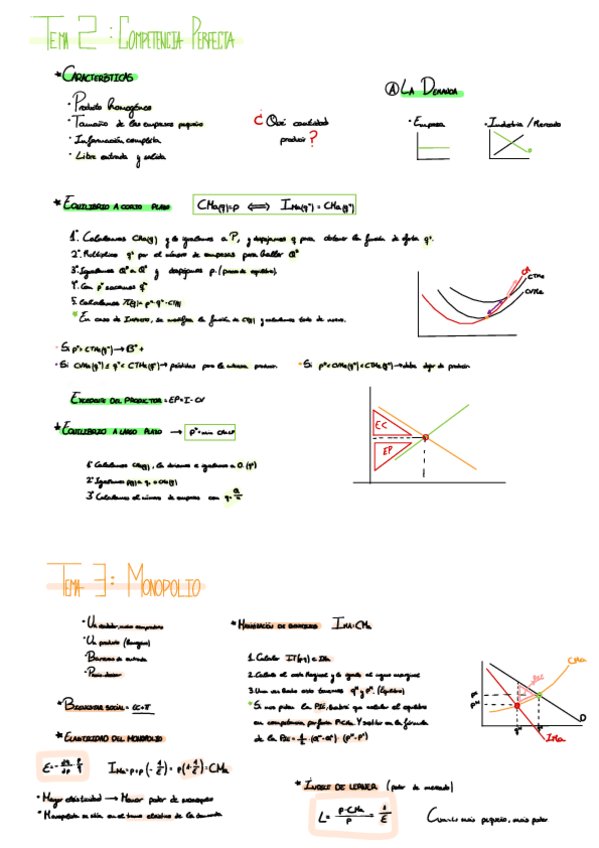 TEMA 2: COMPETENCIA PERFECTA
* CARACTERÍSTICAS
· Producto homogéneo
· Tamaño de las empresas pequeño
· Información completa
· Libre entrada y salida
¿Qué cantidad
producir?
Ⓐ LA DEMANDA
· Empresa
· Industria / Mercado
* EQUILIBRIO A CORTO PLAZO
CMa(q)=p ⟺ IMa(q*) = CMa(q*)
1º. Calculamos CMa(q) y lo igualamos a P, y despejamos q para obtener la función de oferta qº.
2º. Multiplico qº por el número de empresas para hallar Qº
3º. Igualamos Qº a Qᵈ y despejamos p. (precio de equilibrio).
4º. Con p* sacamos q*
5. Calculamos π(q)= p*·q*-CT(q)
* En caso de Impuesto, se modifica la función de CT(q) y calculamos todo de nuevo.
CMa
CTMe
CVMe
· Si p*> CTMe(q*) → Bº +
· Si CVMe(q*) ≤ CTMe(q*) → pérdidas pero le interesa producir.
· Si p*<CVMe(q*)<CTMe(q*) → debe dejar de producir.
EXCEDENTE DEL PRODUCTOR = EP = I - CV
* EQUILIBRIO A LARGO PLAZO →
EC
EP
1º Calculamos CMe(q), la derivamos e igualamos a 0. (qᴸ)
3º Calculamos el número de empresas con
TEMA 3: MONOPOLIO
· Un vendedor, varios compradores
· Un producto (homogéneo)
· Barreras de entrada
· Precio decisor
* MAXIMIZACIÓN DE BENEFICIO IMa=CMa
1. Calcular IT(p·q) e IMa
2. Calcula el coste marginal y lo iguala al ingreso marginal
3. Una vez hecho esto tenemos qᴹ y pᴹ. (Equilibrio)
* Si nos piden la PIE, habrá que calcular el equilibrio
en competencia perfecta P=CMa. Y sustituir en la fórmula
de la PIE = ½ · (qᶜ-qᴹ) · (pᴹ-pᶜ)
CMa
D
IMa
* BIENESTAR SOCIAL = EC+π
* ELASTICIDAD DEL MONOPOLIO
IMa = p+p(-1/ε) = p(1-1/ε) = CMa
· Mayor elasticidad → Menor poder de monopolio
· Monopolista se sitúa en el tramo elástico de la demanda
* ÍNDICE DE LERNER (poder de mercado)
L = p-CMa / p = 1/ε
Cuanto más pequeño, más poder.